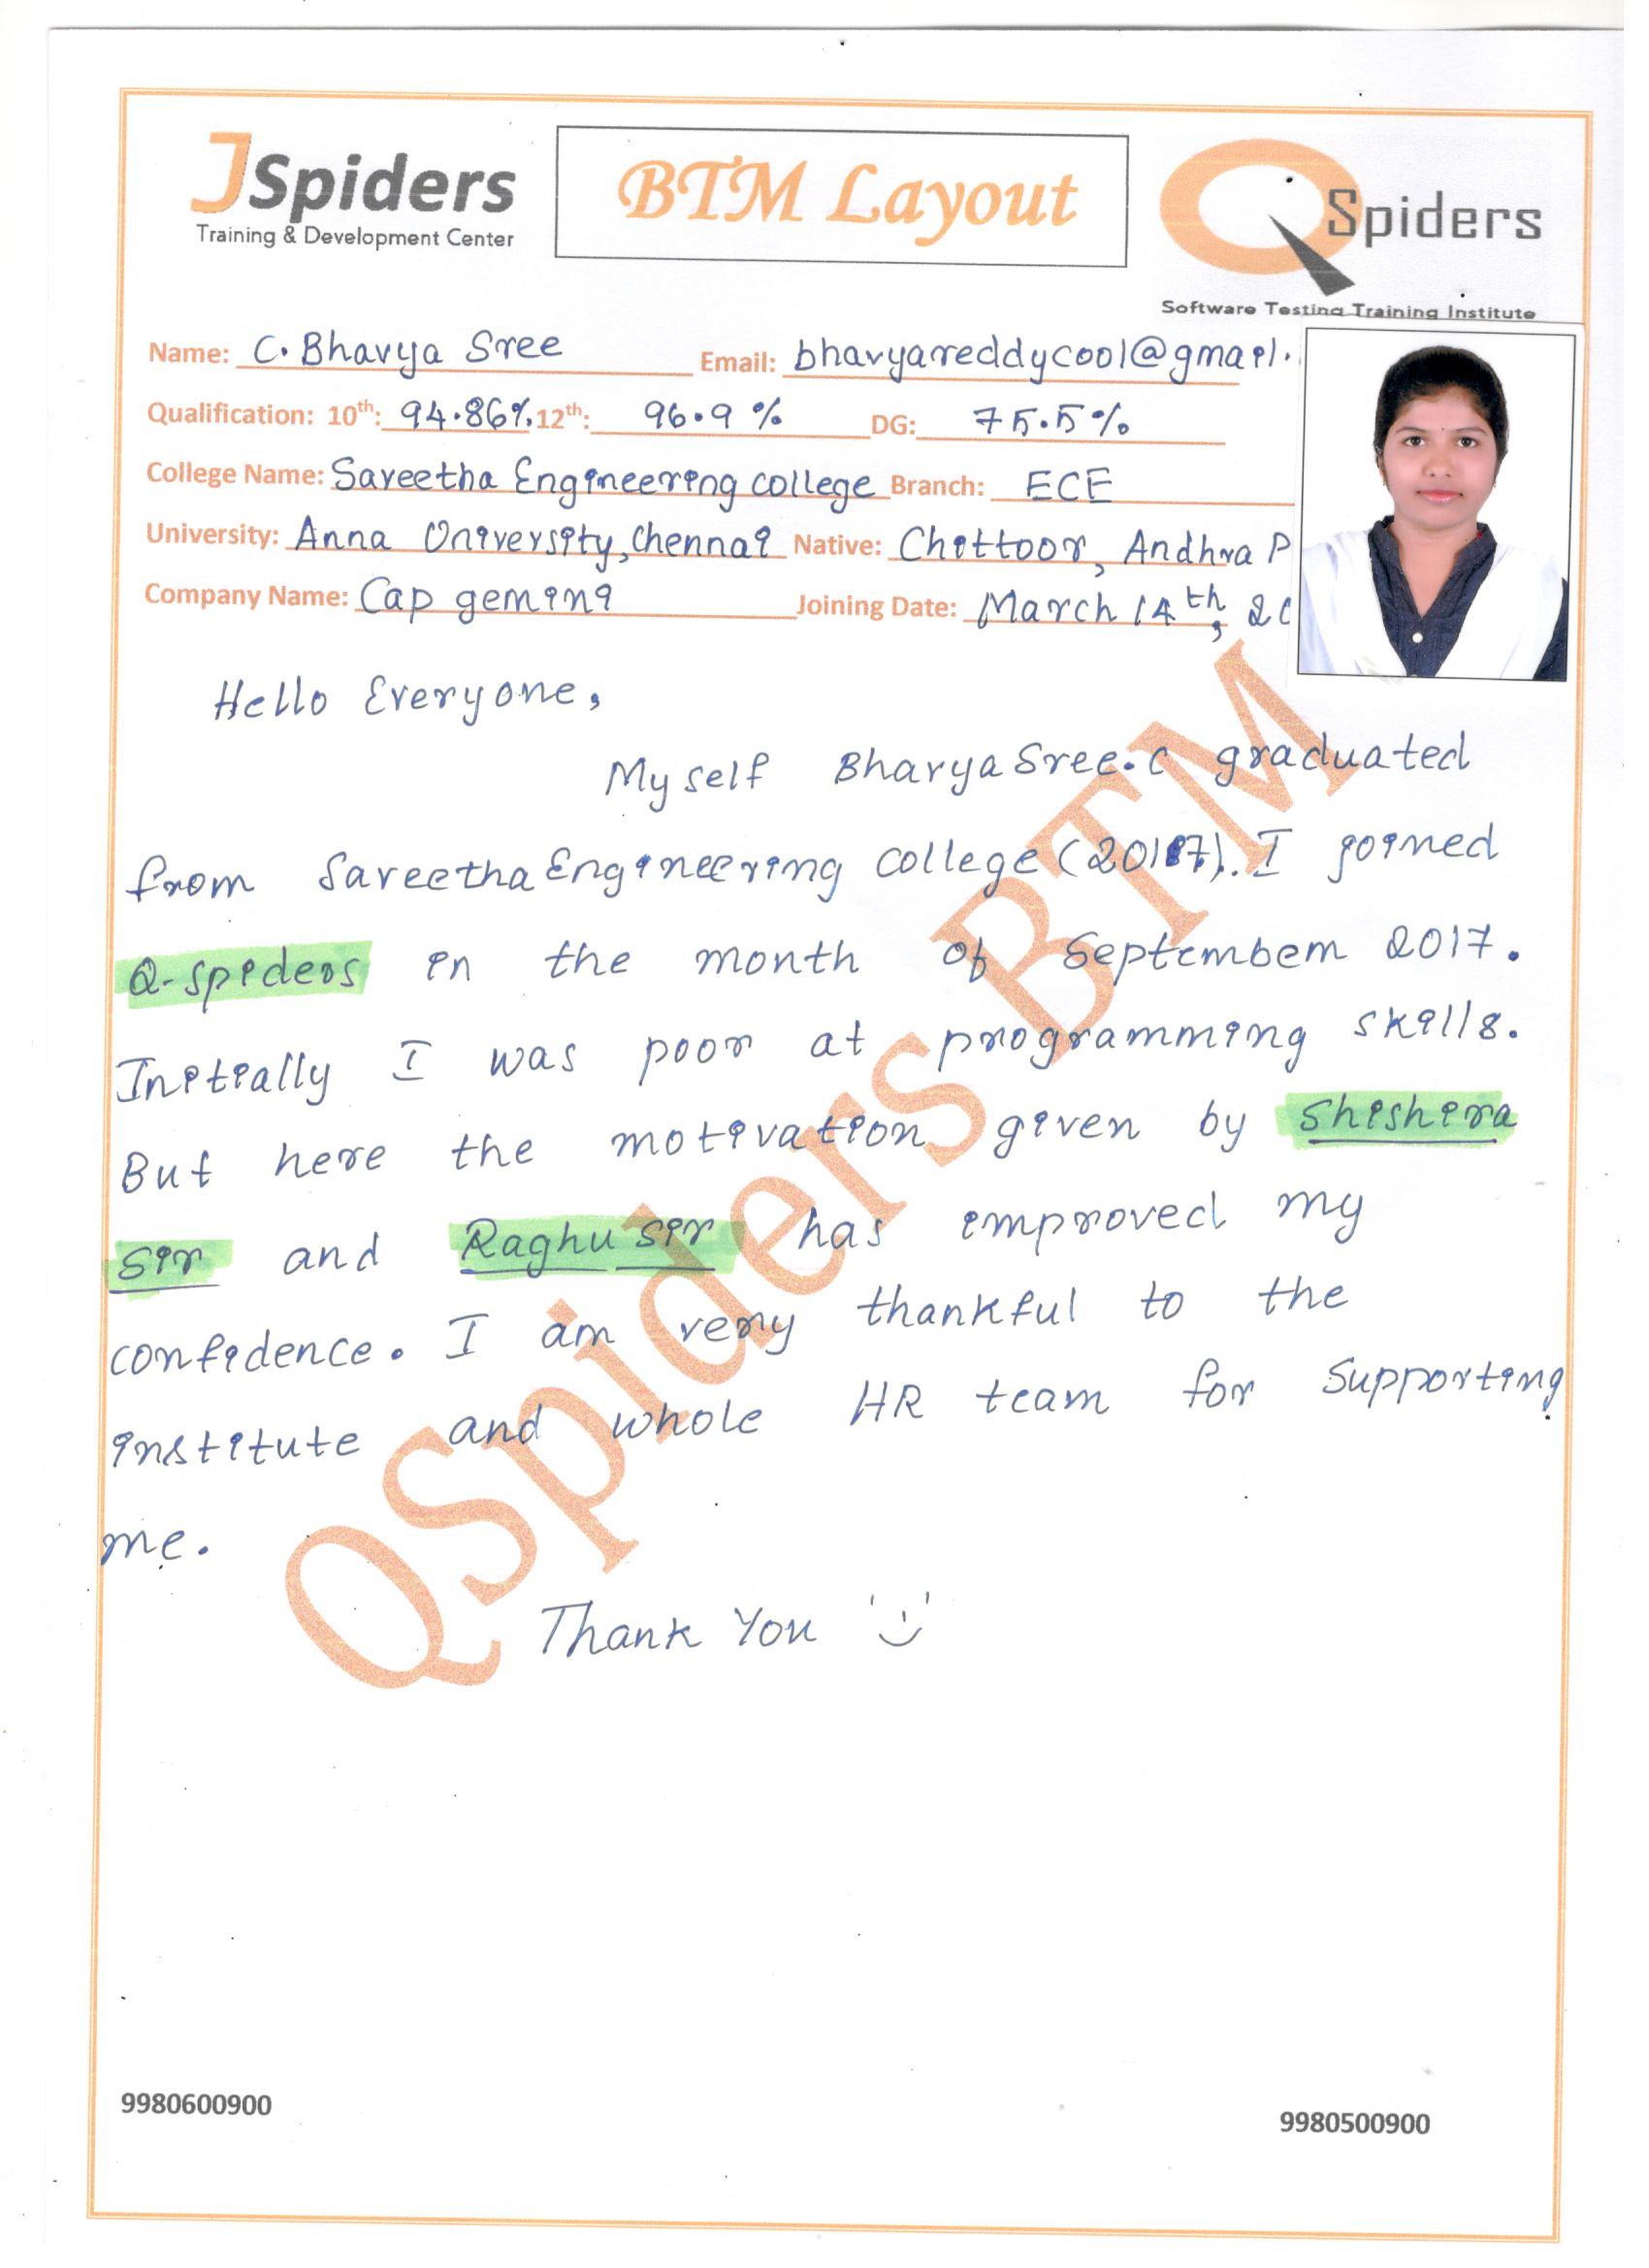 JSpiders
Training & Development Center
BTM Layout
QSpiders
Software Testing Training Institute
Name: C. Bhavya Sree Email: bhavyareddycool@gmail.
Qualification: 10th: 94.86% 12th: 96.9 % DG: 75.5%
College Name: Saveetha Engineering college Branch: ECE
University: Anna University, Chennai Native: Chittoor, Andhra P
Company Name: Cap gemini Joining Date: March 14th, 20
Hello Everyone,
My self Bhavya Sree.C graduated
from Saveetha Engineering College (2017). I joined
Q-spiders in the month of September 2017.
Initially I was poor at programming skills.
But here the motivation given by Shishira
Sir and Raghu sir has improved my
confidence. I am very thankful to the
institute and whole HR team for Supporting
me.
Thank You
QSpiders BTM
9980600900
9980500900